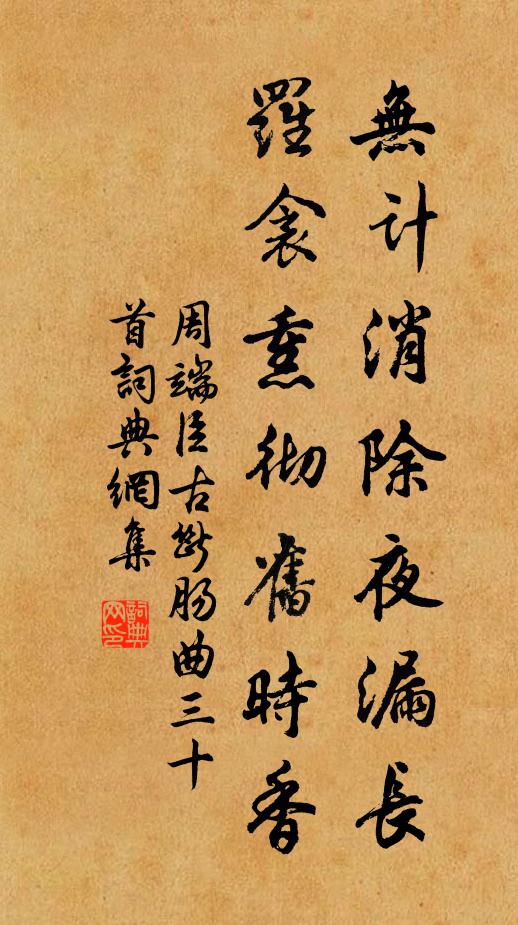 無計消除夜漏長
羅衾熏彻舊時香
周端臣古斷肠曲三十
首詞典網集
詞典网印